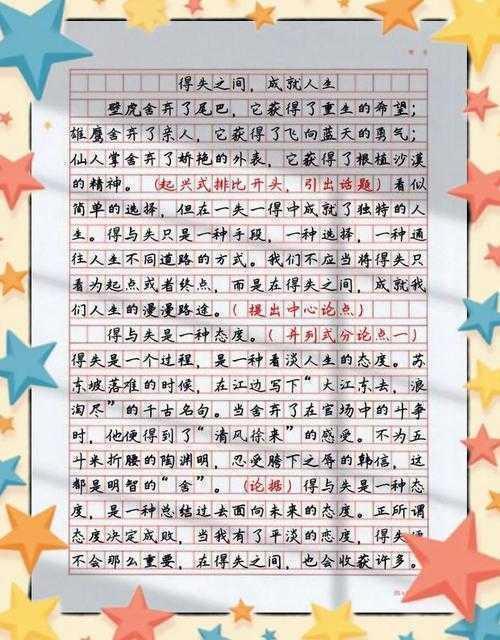 得失之间，成就人生
壁虎舍弃了尾巴，它获得了重生的希望；
雄鹰舍弃了亲人，它获得了飞向蓝天的勇气；
仙人掌舍弃了娇艳的外表，它获得了根植沙漠
的精神。（起兴式排比开头，引出话题）看似
简单的选择，但在一失一得中成就了独特的人
生。得与失只是一种手段，一种选择，一种通
往人生不同道路的方式。我们不应当将得失只
看为起点或者终点，而是在得失之间，成就我
们人生的漫漫路途。（提出中心论点）
得与失是一种态度。（并列式分论点一）
得失是一个过程，是一种看淡人生的态度。苏
东坡落难的时候，在江边写下“大江东去，浪
淘尽”的千古名句。当舍弃了在官场中的斗争
时，他便得到了“清风徐来”的感受。不为五
斗米折腰的陶渊明，忍受胯下之辱的韩信，这
都是明智的“舍”。（论据）得与失是一种态
度，是一种总结过去面向未来的态度。正所谓
态度决定成败，当我有了平淡的态度，得失
不会那么重要，在得失之间，也会收获许多。